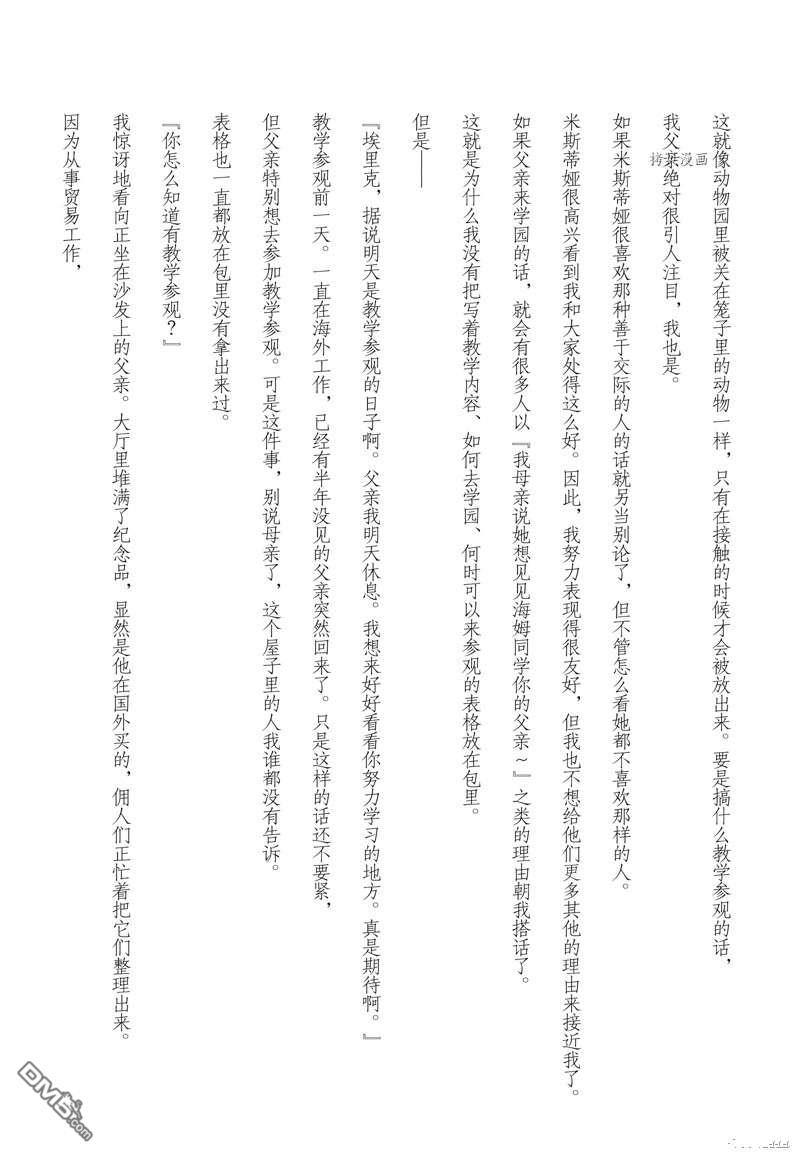 这就像动物园里被关在笼子里的动物一样，只有在接触的时候才会被放出来。要是搞什么教学参观的话，
我父亲绝对很引人注目，我也是。
拷贝漫画
如果米斯蒂娅很喜欢那种善于交际的人的话就另当别论了，但不管怎么看她都不喜欢那样的人。
米斯蒂娅很高兴看到我和大家处得这么好。因此，我努力表现得很友好，但我也不想给他们更多其他的理由来接近我了。
如果父亲来学园的话，就会有很多人以『我母亲说她想见见海姆同学你的父亲～』之类的理由朝我搭话了。
这就是为什么我没有把写着教学内容、如何去学园、何时可以来参观的表格放在包里。
但是——
『埃里克，据说明天是教学参观的日子啊。父亲我明天休息。我想来好好看看你努力学习的地方。真是期待啊。』
教学参观前一天。一直在海外工作，已经有半年没见的父亲突然回来了。只是这样的话还不要紧，
但父亲特别想去参加教学参观。可是这件事，别说母亲了，这个屋子里的人我谁都没有告诉。
表格也一直都放在包里没有拿出来过。
『你怎么知道有教学参观？』
我惊讶地看向正坐在沙发上的父亲。大厅里堆满了纪念品，显然是他在国外买的，佣人们正忙着把它们整理出来。
因为从事贸易工作，
DM5